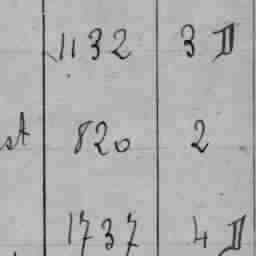 1132 3 D
st 820 2
1737 4 D